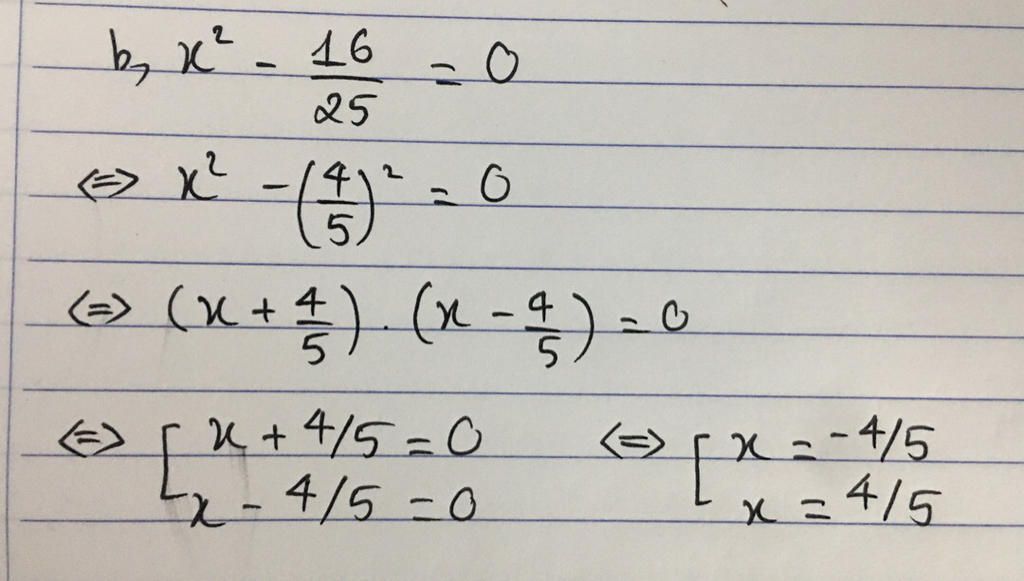 b, x² - 16/25 = 0
<=> x² - (4/5)² = 0
<=> (x + 4/5) . (x - 4/5) = 0
<=> [ x + 4/5 = 0 <=> [ x = -4/5
x - 4/5 = 0 x = 4/5